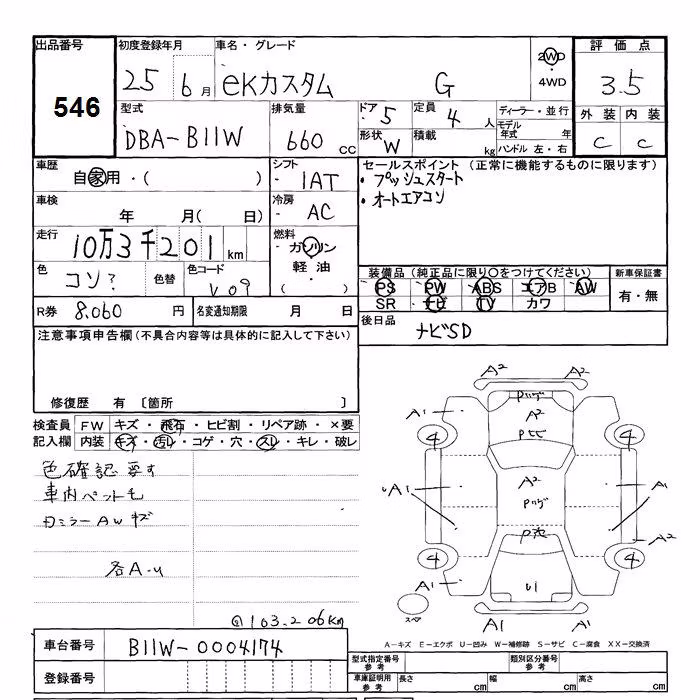 出品番号 初度登録年月 車名・グレード 2WD 評価点
546 25 6月 eKカスタム G 4WD 3.5
型式 排気量 ドア 5 定員 4人 ディーラー・並行 外装 内装
DBA-B11W 660 cc 形状 W 積載 kg モデル年式 年 C C
ハンドル 左・右
車歴 シフト セールスポイント (正常に機能するものに限ります)
自家用・( ) IAT ・プッシュスタート
車検 冷房 ・オートエアコン
年 月( 日) AC
走行 燃料
10万3千201km ガソリン
軽油
( )
色 色替 色コード 装備品(純正品に限り○をつけてください) 新車保証書
コン? V09 PS PW ABS エアB AW 有・無
SR ナビ TV カワ
R券 8,060円 名変通知期限 月 日 後日品
ナビSD
注意事項申告欄(不具合内容等は具体的に記入して下さい)
修復歴 有 〔箇所 〕
検査員 FW キズ・飛石・ヒビ割・リペア跡・×要
記入欄 内装 キズ・汚レ・コゲ・穴・スレ・キレ・破レ
色確認要す
車内ペット毛
ミラーAWキズ
各A-U
103,206km
A2 A2
Pハゲ
A1 A2
4 Pヒビ 4
A2
A1 Pハゲ A1
A2
4 4
A1 U1
スペア
A1 A1
A-キズ E-エクボ U-凹み W-補修跡 S-サビ C-腐食 XX-交換済
車台番号 B11W-0004174
登録番号
型式指定番号 参考 類別区分番号 参考
車庫証明用 参考 長さ cm 幅 cm 高さ cm